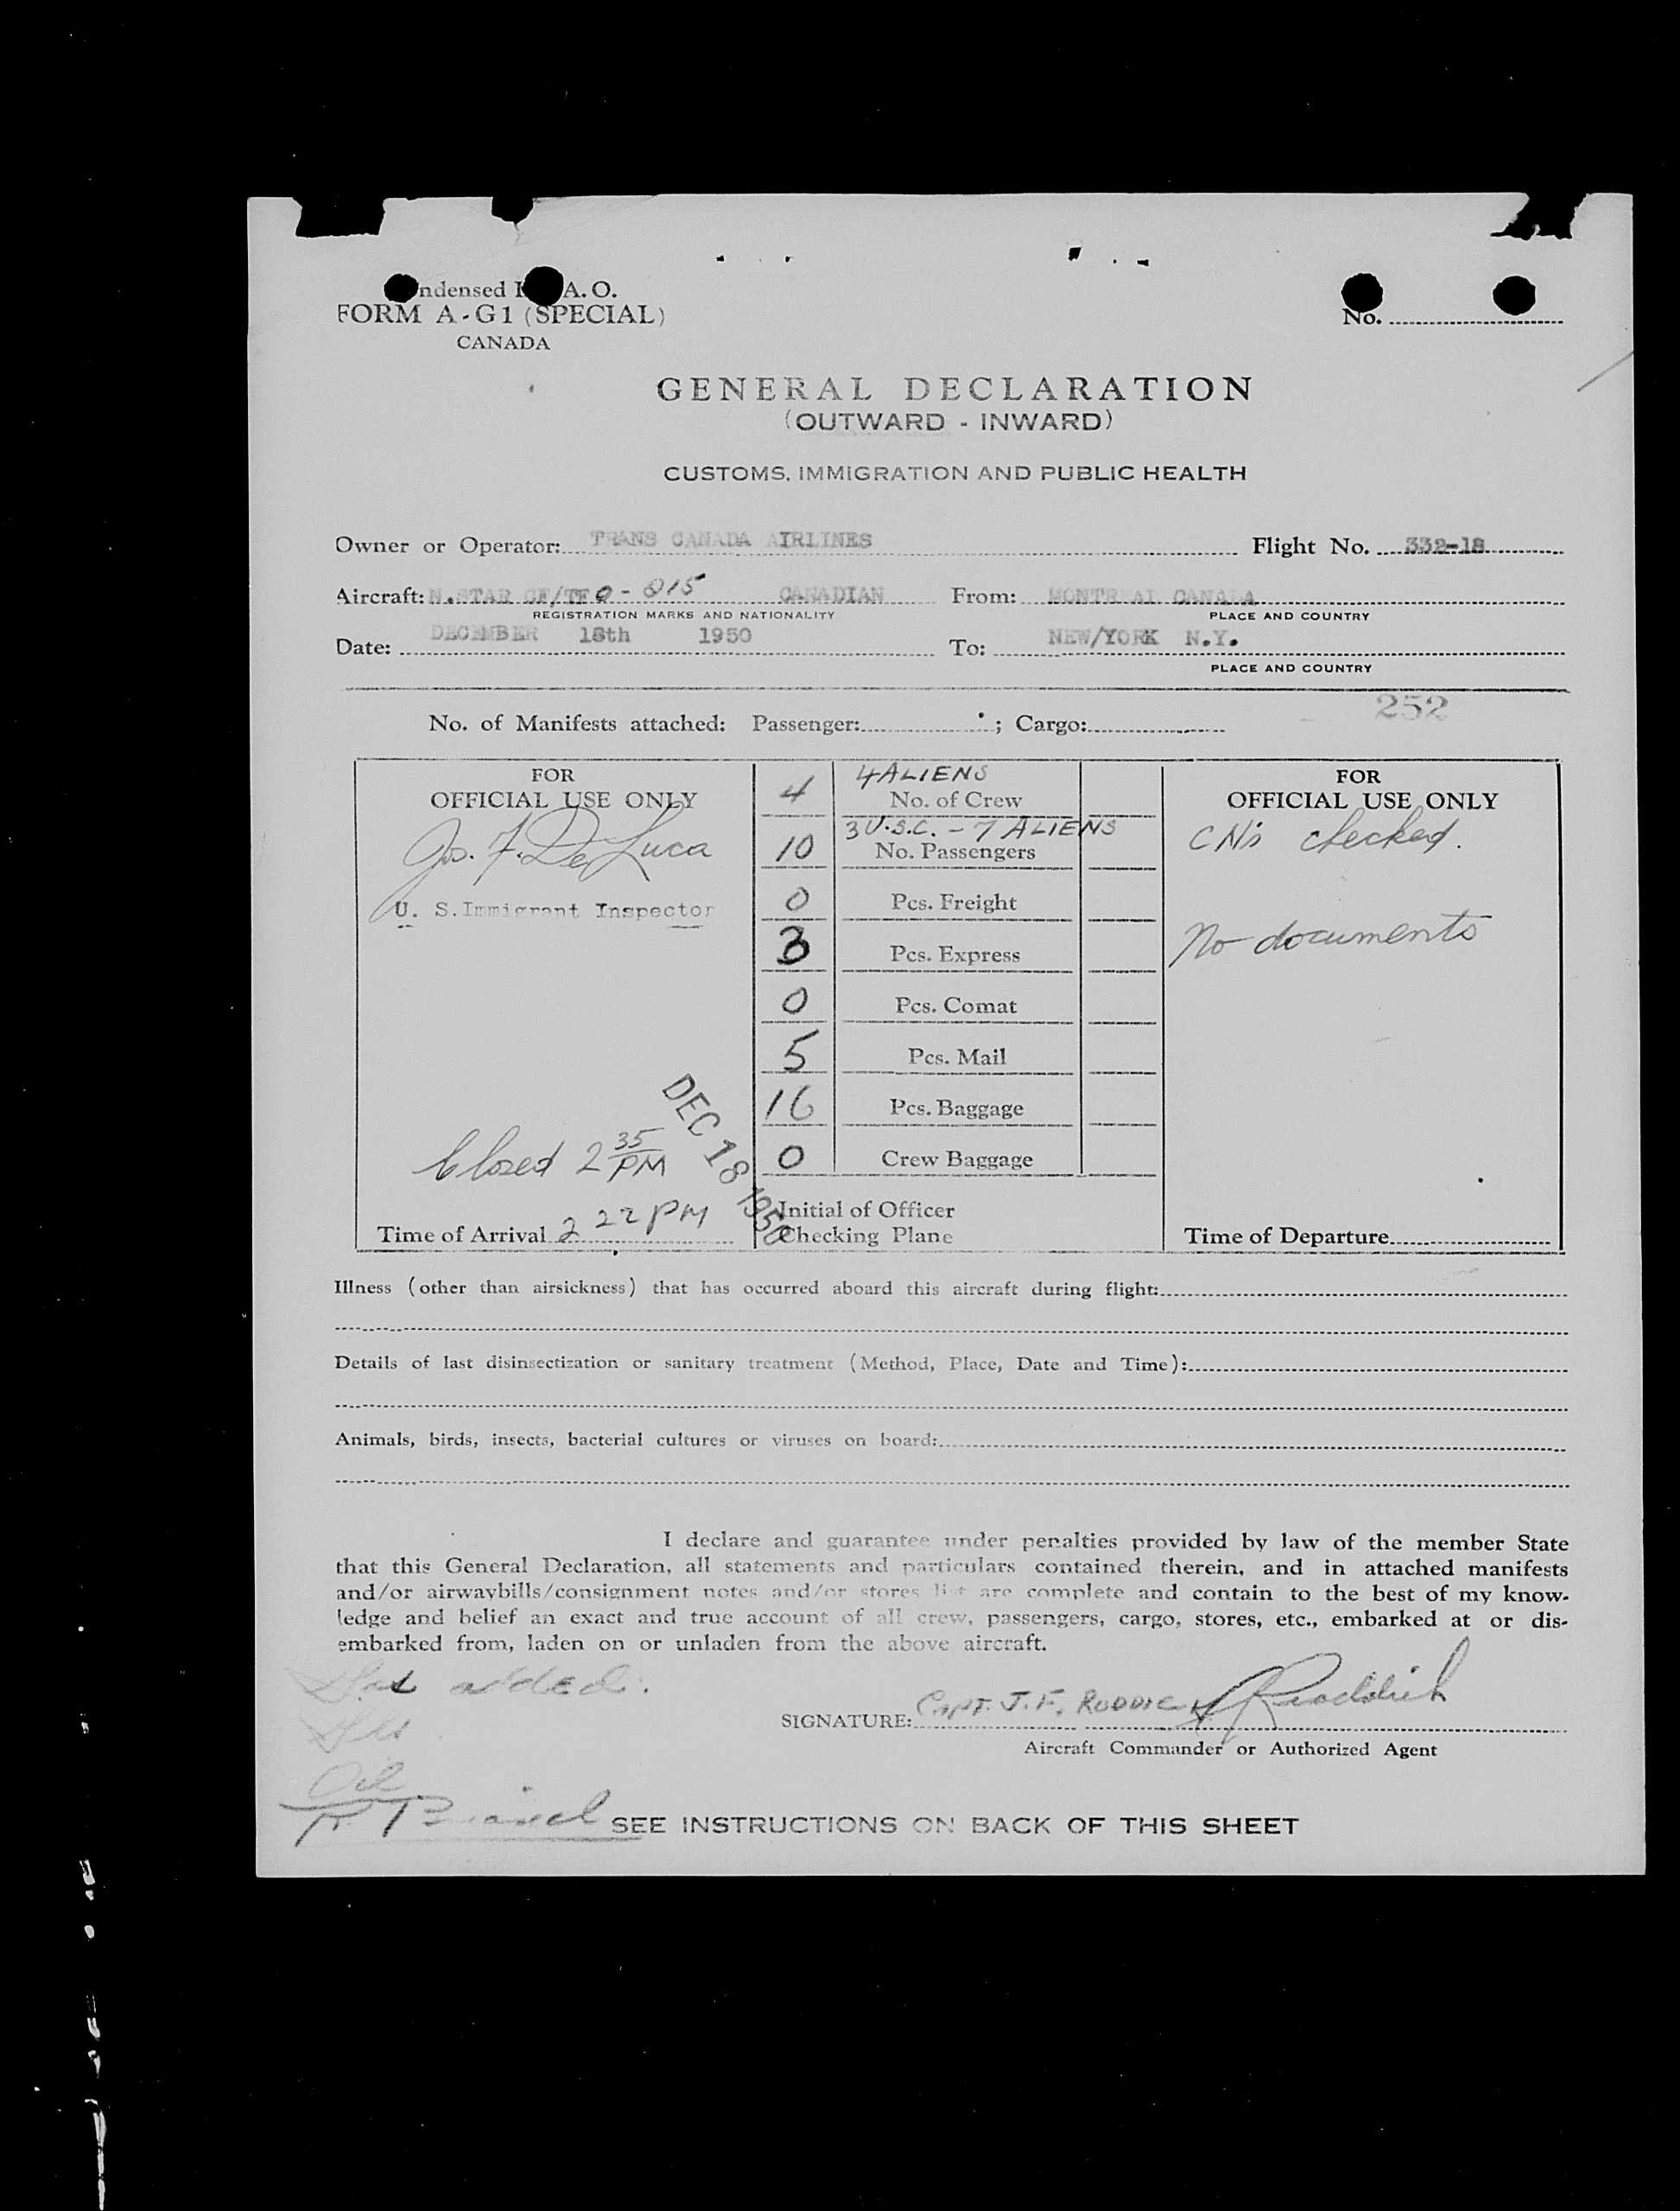 ndensed I A.O.
FORM A-G1 (SPECIAL)
CANADA
No.
GENERAL DECLARATION
(OUTWARD - INWARD)
CUSTOMS, IMMIGRATION AND PUBLIC HEALTH
Owner or Operator: TRANS CANADA AIRLINES Flight No. 332-18
Aircraft: N.STAR CF/TFO - 015 CANADIAN From: MONTREAL CANADA
REGISTRATION MARKS AND NATIONALITY PLACE AND COUNTRY
Date: DECEMBER 18th 1950 To: NEW/YORK N.Y.
PLACE AND COUNTRY
252
No. of Manifests attached: Passenger: ; Cargo:
FOR
OFFICIAL USE ONLY
Jos. F. De Luca
U. S. Immigrant Inspector
Closed 2 35 PM
DEC 18 1950
Time of Arrival 2 22 PM
4 ALIENS
4 No. of Crew
3 U.S.C. - 7 ALIENS
10 No. Passengers
0 Pcs. Freight
3 Pcs. Express
0 Pcs. Comat
5 Pcs. Mail
16 Pcs. Baggage
0 Crew Baggage
Initial of Officer
Checking Plane
FOR
OFFICIAL USE ONLY
CN's checked.
No documents
Time of Departure
Illness (other than airsickness) that has occurred aboard this aircraft during flight:
Details of last disinsectization or sanitary treatment (Method, Place, Date and Time):
Animals, birds, insects, bacterial cultures or viruses on board:
I declare and guarantee under penalties provided by law of the member State
that this General Declaration, all statements and particulars contained therein, and in attached manifests
and/or airwaybills/consignment notes and/or stores list are complete and contain to the best of my know-
ledge and belief an exact and true account of all crew, passengers, cargo, stores, etc., embarked at or dis-
embarked from, laden on or unladen from the above aircraft.
added.
Oil
SIGNATURE: CAPT. J.F. RODDICK
Aircraft Commander or Authorized Agent
SEE INSTRUCTIONS ON BACK OF THIS SHEET